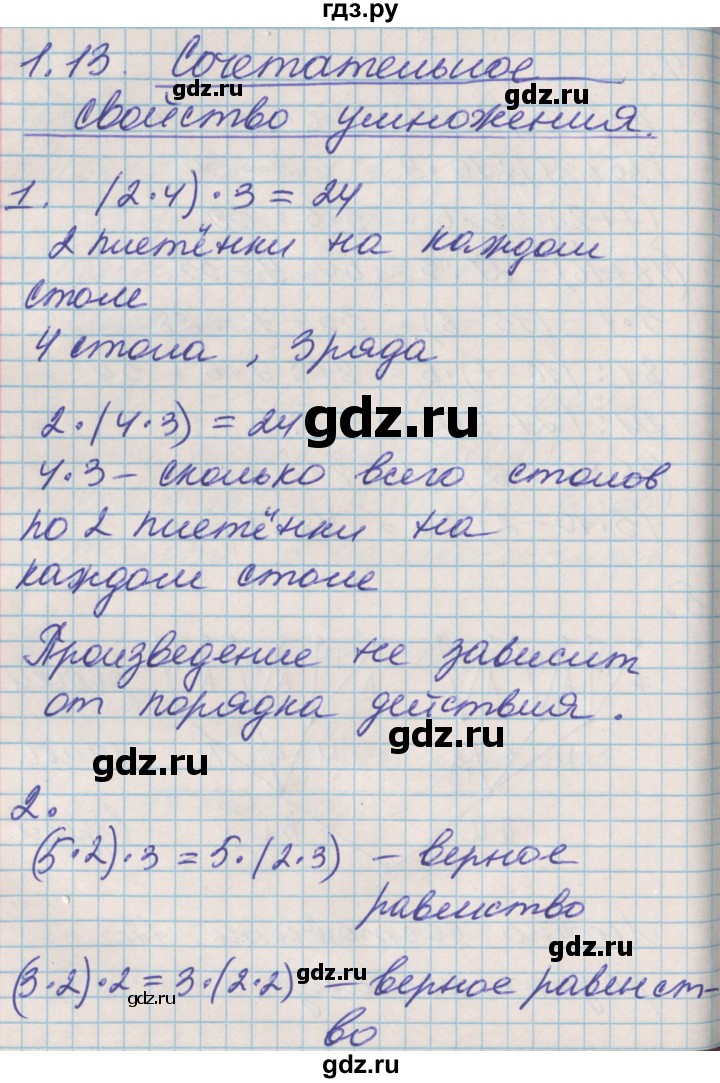 гдз.ру
1.13. Сочетательное
gdz.ru
gdz.ru
свойство умножения.
gdz.ru
gdz.ru
1. (2·4)·3=24
2 плетёнки на каждом
столе
4 стола, 3 ряда
2·(4·3)=24
gdz.ru
4·3 – сколько всего столов
по 2 плетёнки на
каждом столе
Произведение не зависит
от порядка действия.
gdz.ru
gdz.ru
2.
(5·2)·3=5·(2·3) – верное
равенство
gdz.ru
(3·2)·2=3·(2·2) – верное равенст-
gdz.ru
gdz.ru
во
gdz.ru